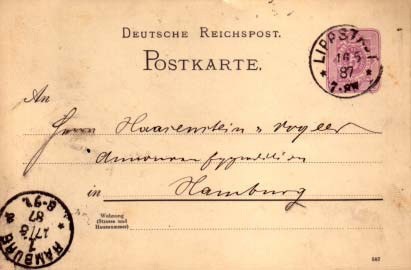 DEUTSCHE REICHSPOST.
POSTKARTE.
LIPPSTADT
16 5
87
7-8N
An
Herren Haasenstein & Vogler
Annoncenexpedition
in Hamburg
Wohnung
(Strasse und
Hausnummer)
HAMBURG
87
8-9